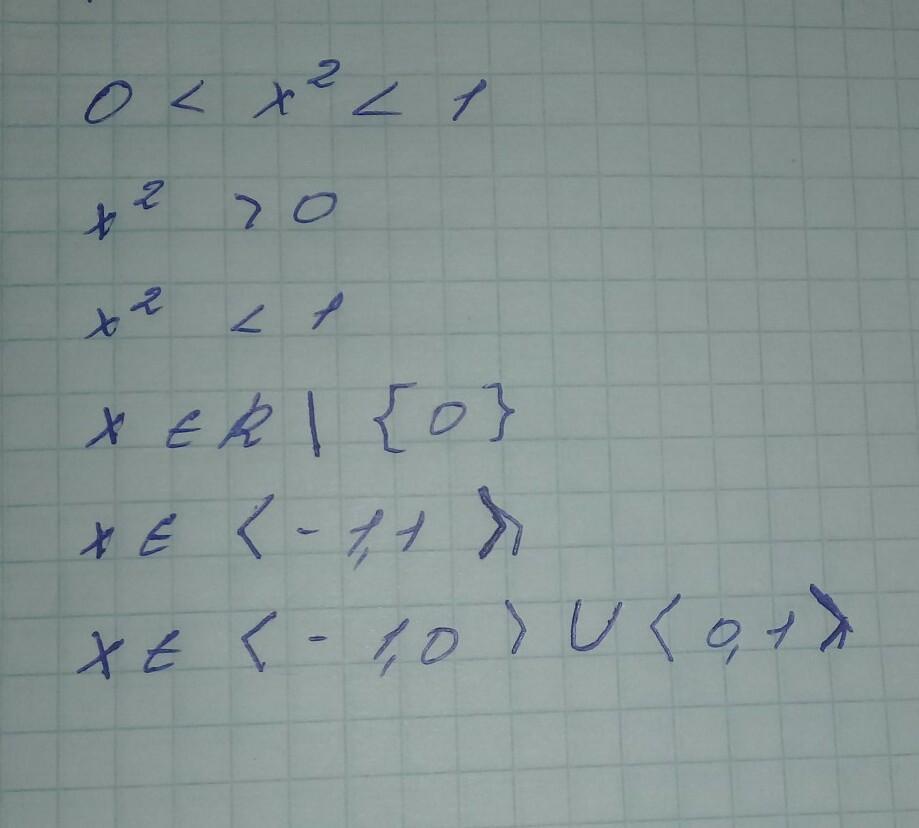 0 < x² < 1
x² > 0
x² < 1
x ∈ R | {0}
x ∈ ⟨-1,1⟩
x ∈ ⟨-1,0⟩ ∪ ⟨0,1⟩